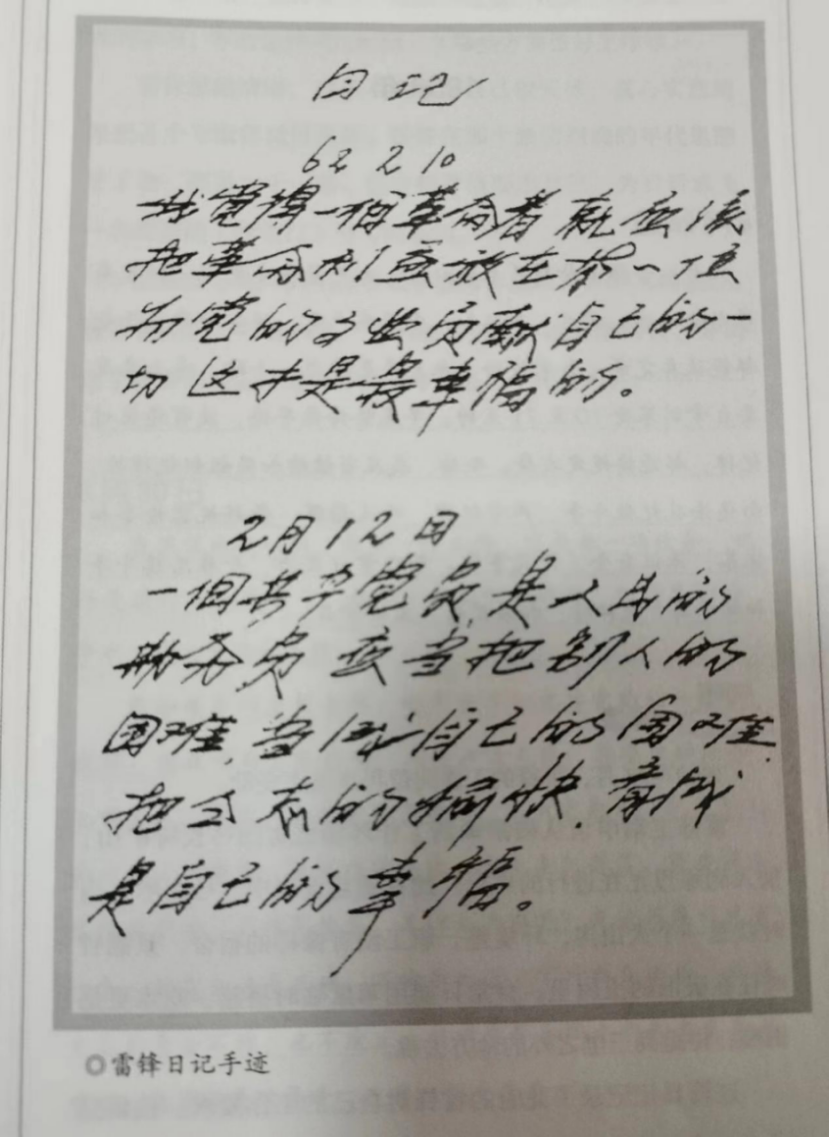 日记
62 2 10
我觉得一个革命者就应该
把革命利益放在第一位
为党的事业贡献自己的一
切这才是最幸福的。
2月12日
一个共产党员,是人民的
勤务员应当把别人的
困难,当成自己的困难.
把同志的愉快.看成
是自己的幸福。
◎雷锋日记手迹